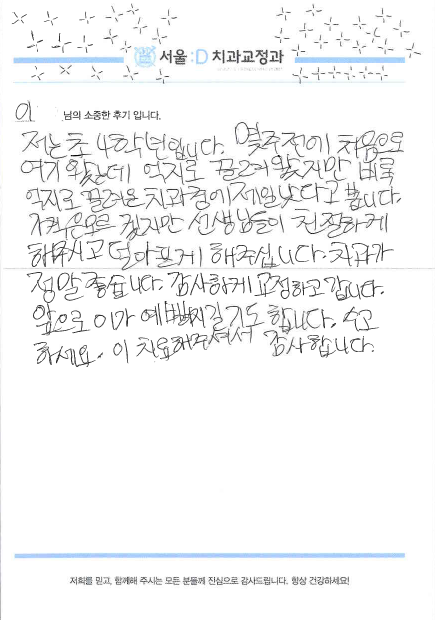 서울:D 치과교정과
이 님의 소중한 후기 입니다.
저는 초 4학년입니다. 몇주전에 처음으로
여기 왔는데 억지로 끌려왔지만 비록
억지로 끌려온 치과중에 제일낫다고 봅니다.
선생님들이 친절하게
해주시고 덜아프게 해주십니다. 치과가
정말 좋습니다. 감사하게 교정하고 갑니다.
앞으로 이가 예뻐지길 기도 합니다. 수고
하세요. 이 치료해주셔서 감사합니다.
저희를 믿고, 함께해 주시는 모든 분들께 진심으로 감사드립니다. 항상 건강하세요!